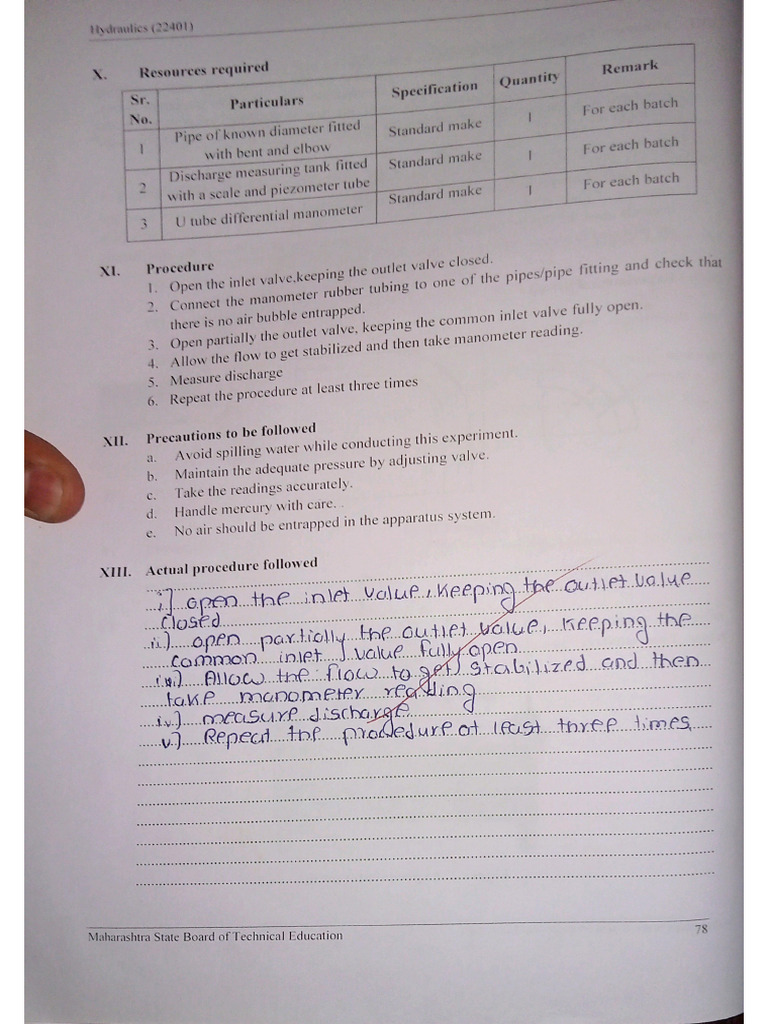 Hydraulics (22401)
X. Resources required
Sr. No. Particulars Specification Quantity Remark
1 Pipe of known diameter fitted with bent and elbow Standard make 1 For each batch
2 Discharge measuring tank fitted with a scale and piezometer tube Standard make 1 For each batch
3 U tube differential manometer Standard make 1 For each batch
XI. Procedure
1. Open the inlet valve,keeping the outlet valve closed.
2. Connect the manometer rubber tubing to one of the pipes/pipe fitting and check that
there is no air bubble entrapped.
3. Open partially the outlet valve, keeping the common inlet valve fully open.
4. Allow the flow to get stabilized and then take manometer reading.
5. Measure discharge
6. Repeat the procedure at least three times
XII. Precautions to be followed
a. Avoid spilling water while conducting this experiment.
b. Maintain the adequate pressure by adjusting valve.
c. Take the readings accurately.
d. Handle mercury with care.
e. No air should be entrapped in the apparatus system.
XIII. Actual procedure followed
i.) open the inlet value, keeping the outlet value
closed
ii.) open partially the outlet value, keeping the
common inlet value fully open
iii.) Allow the flow to get stabilized and then
take manometer reading
iv.) measure discharge
v.) Repeat the procedure at least three times
Maharashtra State Board of Technical Education 78